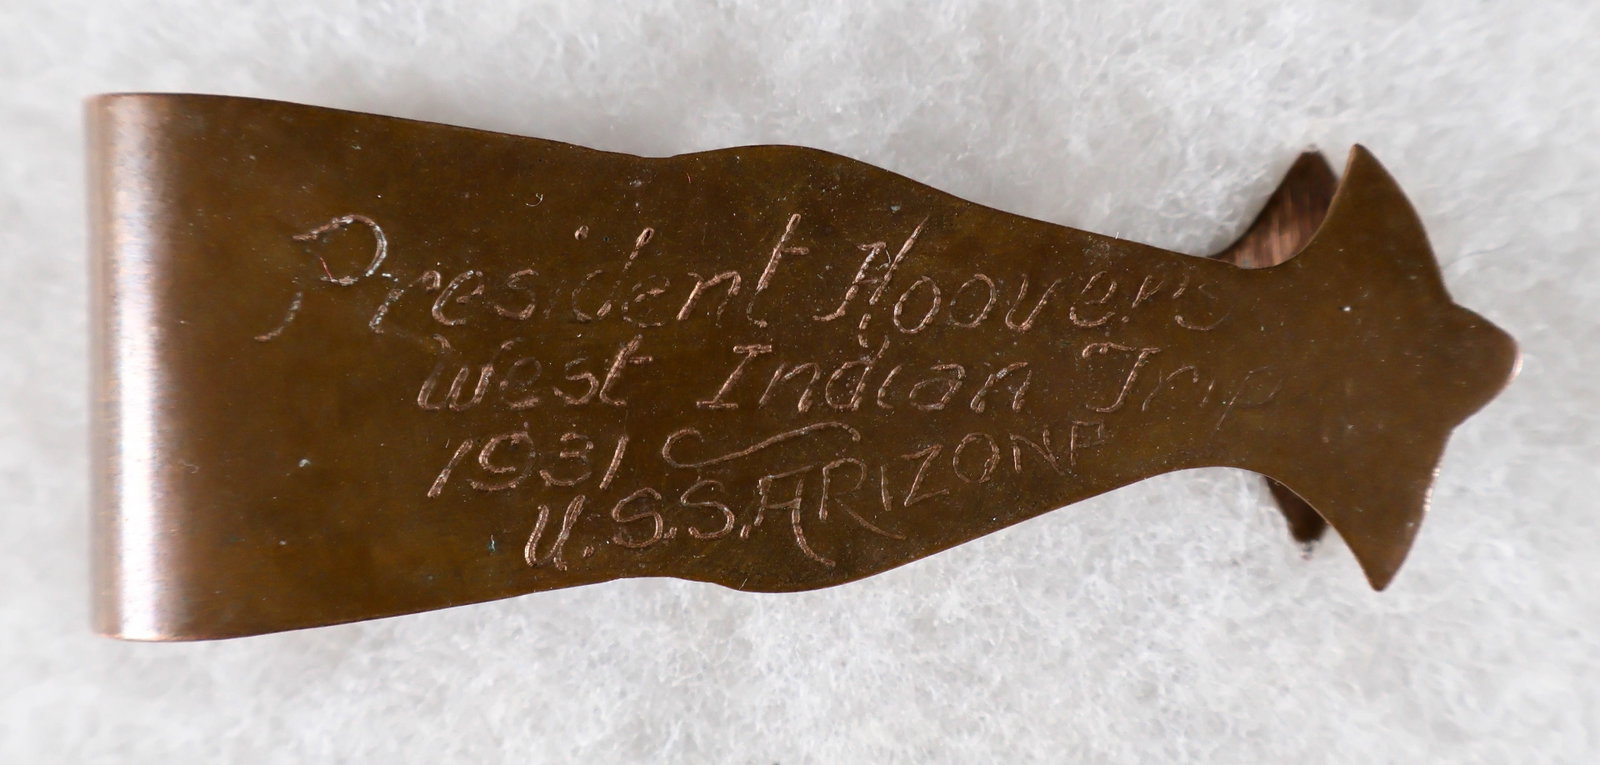 President Hoovers
West Indian Trip
1931
U.S.S. ARIZONA